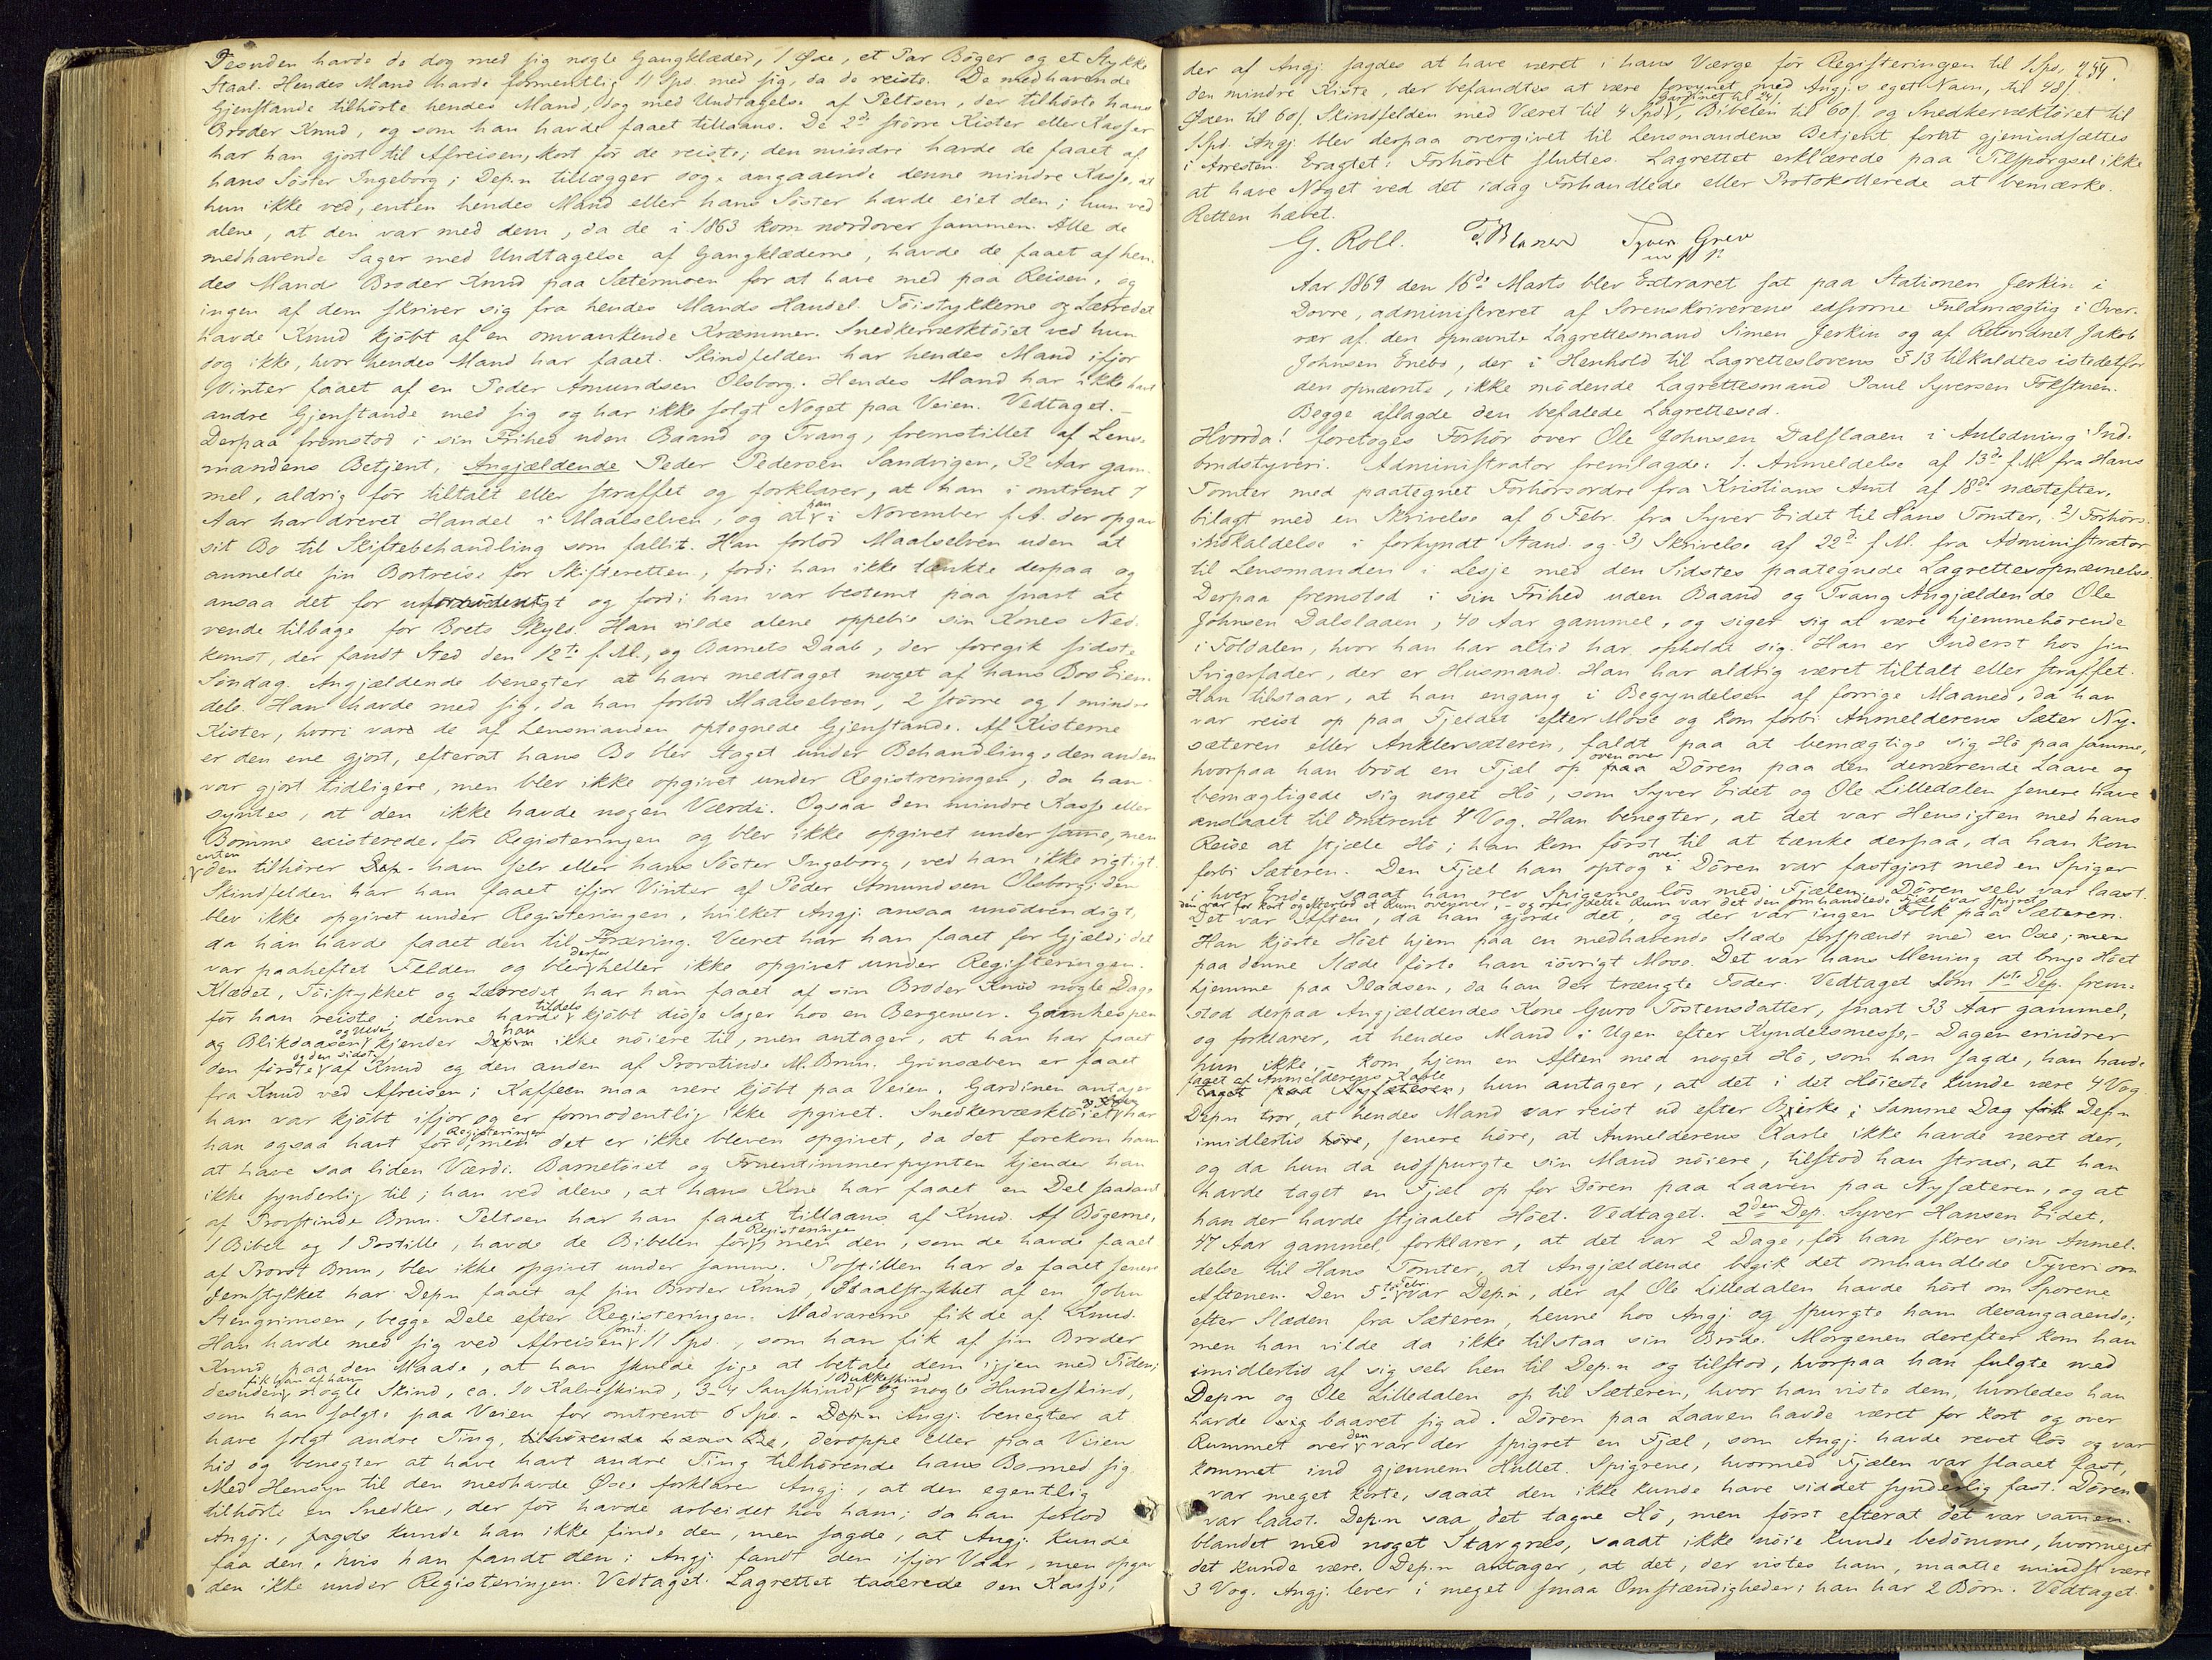 Desuden havde de dog med sig nogle Gangklæder, 1 Øxe, et Par Bøger og et Stykke
Staal. Hendes Mand havde formentlig 11 Spd med sig, da de reiste. De medhavende
Gjenstande tilhörte hendes Mand, dog med Undtagelse af Peltsen, der tilhörte hans
Broder Knud, og som han havde faaet tillaans. De 2de större Kister eller Kasser
har han gjort til Afreisen, kort för de reiste; den mindre havde de faaet af
hans Söster Ingeborg; Dep.n tillægger dog angaaende denne mindre Kasse, at
hun ikke ved, enten hendes Mand eller hans Söster havde eiet den; hun ved
alene, at den var med dem, da de i 1863 kom nordover sammen. Alle de
medhavende Sager med Undtagelse af Gangklæderne, havde de faaet af hen-
des Mands Broder Knud paa Sætermoen for at have med paa Reisen, og
ingen af dem skriver sig fra hendes Mands Handel. Töistykkerne og Lærredet
havde Knud kjöbt af en omvankende Kræmmer. Snedkerværktöiet ved hun
dog ikke, hvor hendes Mand har faaet. Skindfelden har hendes Mand ifjor
Vinter faaet af en Peder Amundsen Olsborg. Hendes Mand har ikke havt
andre Gjenstande med sig og har ikke solgt Noget paa Veien. Vedtaget.
Derpaa fremstod i sin Frihed uden Baand og Tvang, fremstillet af Lens-
mandens Betjent, Angjældende Peder Pedersen Sandvigen, 32 Aar gam-
mel, aldrig för tiltalt eller straffet og forklarer, at han i omtrent 7
Aar har drevet Handel i Maalselven, og at han i November f.A. der opgav
sit Bo til Skiftebehandling som fallit. Han forlod Maalselven uden at
anmelde sin Bortreise for Skifteretten, fordi han ikke tænkte derpaa og
ansaa det for unödvendigt og fordi han var bestemt paa snart at
vende tilbage for Boets Skyld. Han vilde alene oppebie sin Kones Ned-
komst, der fandt Sted den 12te f.M., og Barnets Daab, der foregik sidste
Söndag. Angjældende benegter at have medtaget noget af hans Bos Eien-
dele. Han havde med sig, da han forlod Maalselven, 2 större og 1 mindre
Kister, hvori vare de af Lensmanden optegnede Gjenstande. Af Kisterne
er den ene gjort, efterat hans Bo blev taget under Behandling, den anden
var gjort tidligere, men blev ikke opgivet under Registreringen, da han
syntes, at den ikke havde nogen Værdi. Ogsaa den mindre Kasse eller
Bomme existerede för Registeringen og blev ikke opgivet under samme, men
enten
den tilhörer Dep. ham selv eller hans Söster Ingeborg, ved han ikke rigtigt.
Skindfelden har han faaet ifjor Vinter af Peder Amundsen Olsborg; den
blev ikke opgivet under Registeringen, hvilket Angj. ansaa unödvendigt,
da han havde faaet den til Foræring. Været har han faaet for Gjæld; det
var paaheftet Felden og blev derfor heller ikke opgivet under Registeringen.
Klædet, Töistykket og Lærredet har han faaet af sin Broder Knud nogle Dage
för han reiste; denne havde tildels kjöbt disse Sager hos en Bergenser. Garnhespen
og Blikdaasen og Uldet kjender Dep.n han ikke nöiere til, men antager, at han har faaet
den förste og den sidste af Knud og den anden af Provstinde M. Brun. Grönsæben er faaet
fra Knud ved Afreisen; Kaffeen maa være kjöbt paa Veien. Gardinen antager
han var kjöbt ifjor og er formodentlig ikke opgivet. Snedkerværktöiet har
han ogsaa havt för Registeringen, men det er ikke bleven opgivet, da det forekom ham
at have saa liden Værdi. Barnetöiet og Fruentimmerpynten kjender han
ikke synderlig til; han ved alene, at hans Kone har faaet en Del saadant
af Provstinde Brun. Peltsen har han faaet tillaans af Knud. Af Bögerne,
1 Bibel og 1 Postille, havde de Bibelen för Registeringen, men den, som de havde faaet
af Provst Brun, blev ikke opgivet under samme. Postillen har de faaet senere
Jernstykket har Dep.n faaet af sin Broder Knud, Staalstykket af en John
Stengrimsen, begge Dele efter Registeringen. Madvarerne fik de af Knud.
Han havde med sig ved Afreisen omt. 11 Spd, som han fik af sin Broder
Knud paa den Maade, at han skulde söge at betale dem igjen med Tiden;
desuden fik han af ham nogle Skind, ca. 10 Kalveskind, 3-4 Saueskind, 1 Bukkeskind og nogle Hundeskind,
som han solgte paa Veien for omtrent 6 Spd. Dep.n Angj. benegter at
have solgt andre Ting, tilhörende hans Bo, deroppe eller paa Veien
hid og benegter at have havt andre Ting tilhörende hans Bo med sig
Med Hensyn til den medhavde Öxe forklarer Angj., at den egentlig
tilhörte en Snedker, der för havde arbeidet hos ham; da han forlod
Angj., sagde kunde han ikke finde den, men sagde, at Angj. kunde
faa den, hvis han fandt den; Angj. fandt den ifjor Vaar, men opgav
den ikke under Registeringen. Vedtaget. Lagrettet taxerede den Kasse,
der af Angj. sagdes at have været i hans Værge för Registeringen til 1 Spd, 434.
den mindre Kiste, der befandtes at være forsynet med Angj.s eget Navn, til 48 /.
Öxen til 60/. Skindfelden med Været til 4 Spd, Gardinet til 24/, Bibelen til 60/. og Snedkerværktöiet til
1 Spd. Angj. blev derpaa overgivet til Lensmandens Betjent forat gjenindsættes
i Arresten. Eragtet: Forhöret sluttes. Lagrettet erklærede paa Tilspörgsel ikke
at have Noget ved det idag Forhandlede eller Protokollerede at bemærke.
Retten hævet.
G. Roll. Syver Grev
m f P
Aar 1869 den 16de Marts blev Extraret sat paa Stationen Jerkin i
Dovre, administreret af Sorenskriverens edsvorne Fuldmægtig i Over-
vær af den opnævnte Lagrettesmand Simen Jerkin og af Retsvidnet Jakob
Johnsen Enebo, der i Henhold til Lagretteslovens § 13 tilkaldtes istedetfor
den opnævnte, ikke mödende Lagrettesmand Paul Syversen Fokstuen.
Begge aflagde den befalede Lagretteed.
Hvorda! foretoges Forhör over Ole Johnsen Dalslaaen i Anledning Ind-
brudstyveri. Administrator fremlagde: 1. Anmeldelse af 13de f.M. fra Hans
Tomter med paategnet Forhörsordre fra Kristians Amt af 18de næstefter,
bilagt med en Skrivelse af 6 Febr. fra Syver Eidet til Hans Tomter, 2) Forhörs-
indkaldelse i forkyndt Stand og 3) Skrivelse af 22de f.M. fra Administrator
til Lensmanden i Lesje med den Sidstes paategnede Lagrettesopnævnelse.
Derpaa fremstod i sin Frihed uden Baand og Tvang Angjældende Ole
Johnsen Dalslaaen, 40 Aar gammel, og siger sig at være hjemmehörende
i Foldalen, hvor han har altid har opholdt sig. Han er Inderst hos sin
Svigerfader, der er Husmand. Han har aldrig været tiltalt eller straffet.
Han tilstaar, at han engang i Begyndelsen af forrige Maaned, da han
var reist op paa Fjeldet efter Mose og kom forbi Anmelderens Sæter Ny-
sæteren eller Anklersæteren, faldt paa at bemægtige sig Hö paa samme,
hvorpaa han bröd en Fjæl op paa ovenover Dören paa den derværende Laave og
bemægtigede sig noget Hö, som Syver Eidet og Ole Lilledalen senere have
anslaaet til omtrent 4 Vog. Han benegter, at det var Hensigten med hans
Reise at stjæle Hö; han kom först til at tænke derpaa, da han kom
forbi Sæteren. Den Fjæl han optog over i Dören var fastgjort med en Spiger
i hver Ende, saaat han rev Spigerne lös med Fjælen. Dören selv var laast.
den var for kort og efterlod et Rum ovenover, - og over dette Rum var det den omhandlede Fjæl var spigret
Det var Aften, da han gjorde det, og der var ingen Folk paa Sæteren.
Han kjörte Höet hjem paa en medhavende Slæde forspændt med en Oxe; men
paa denne Slæde förte han iövrigt Mose. Det var hans Mening at bruge Höet
hjemme paa Pladsen, da han der trængte Foder. Vedtaget. Som 1ste Dep. frem-
stod derpaa Angjældendes Kone Guro Tostensdatter, snart 33 Aar gammel,
og forklarer, at hendes Mand i Ugen efter Kyndelsmesse, - Dagen erindrer
hun ikke, kom hjem en Aften med noget Hö, som han sagde, han havde
faaet af Anmelderens Karle
taget paa Nysæteren, hun antager, at det i det Höieste kunde være 4 Vog.
Dep.n tror, at hendes Mand var reist ud efter Birke; samme Dag fik Dep.n
imidlertid höre, senere höre, at Anmelderens Karle ikke havde været der,
og da hun da udspurgte sin Mand nöiere, tilstod han strax, at han
havde taget en Fjæl op for Dören paa Laaven paa Nysæteren, og at
han der havde stjaalet Höet. Vedtaget. 2den Dep. Syver Hansen Eidet,
47 Aar gammel, forklarer, at det var 2 Dage, för han skrev sin Anmel-
delse til Hans Tomter, at Angjældende begik det omhandlede Tyveri om
Aftenen. Den 5te Febr. var Dep.n, der af Ole Lilledalen havde hört om Sporene
efter Slæden fra Sæteren, henne hos Angj. og spurgte ham desangaaende;
men han vilde da ikke tilstaa sin Bröde. Morgenen derefter kom han
imidlertid af sig selv hen til Dep.n og tilstod, hvorpaa han fulgte med
Dep.n og Ole Lilledalen op til Sæteren, hvor han viste dem, hvorledes han
havde sig baaret sig ad. Dören paa Laaven havde været for kort og over
Rummet over den var der spigret en Fjæl, som Angj. havde revet lös og var
kommet ind gjennem Hullet. Spigrene, hvormed Fjælen var slaaet fast,
var meget korte, saaat den ikke kunde have siddet synderlig fast. Dören
var laast. Dep.n saa det tagne Hö, men först efterat det var sammen-
blandet med noget Stargræs, saaat ikke nöie kunde bedömme, hvormeget
det kunde være. Dep.n antager, at det, der vistes ham, maatte mindst være
3 Vog. Angj. lever i meget smaa Omstændigheder; han har 2 Börn. Vedtaget.